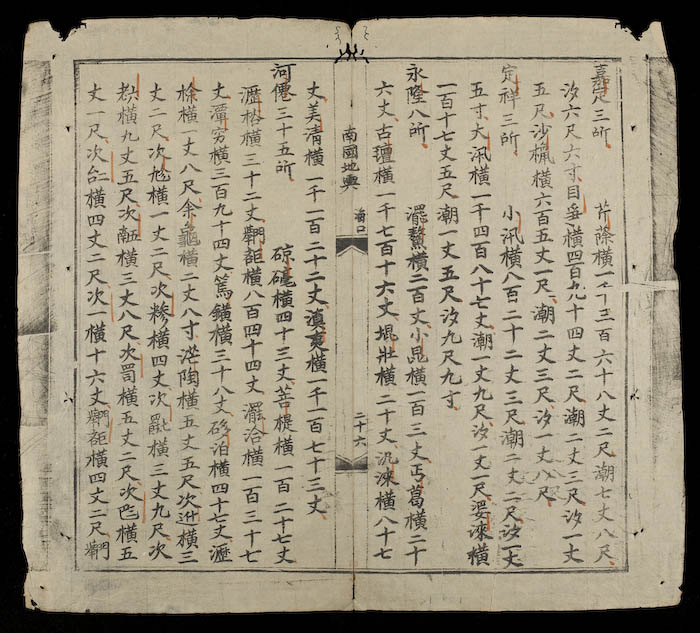 嘉定三所 芹蒢橫一千三百六十八丈二尺潮七丈八尺
汐六尺六寸目垂橫四百九十四丈二尺潮二丈三尺汐一丈
五尺沙橫六百五丈一尺潮二丈三尺汐一丈八尺
定祥三所 小汛橫八百二十二丈三尺潮二丈二尺汐一丈
五寸大汛橫一千四百八十七丈潮一丈九尺汐一丈一尺婆淶橫
一百十七丈五尺潮一丈五尺汐九尺九寸
永隆八所 鰲橫二百丈小昆橫一百三丈丐葛橫二十
六丈古壇橫一千七百十六丈堒壯橫二十丈汎淶橫八十七
南國地輿 海口 二十六
丈美清橫一千一百二十二丈滇夷橫一千一百七十三丈
河僊三十五所 橫四十三丈菩提橫一百二十七丈
瀝橫三十二丈橫八百四十四丈橫一百三十七
丈潭穷橫三百九十四丈篤鐄橫三十八丈泊橫四十七丈瀝
橫一丈八尺余龜橫二丈八寸漭陶橫五丈五尺次𨑮橫三
丈二尺次𠃩橫一丈二尺次糝橫四丈次橫三丈九尺次
橫九丈五尺次𠄼橫三丈八尺次罰橫五丈二尺次𠀧橫五
丈一尺次𠄩橫四丈二尺次一橫十六丈橫四丈二尺